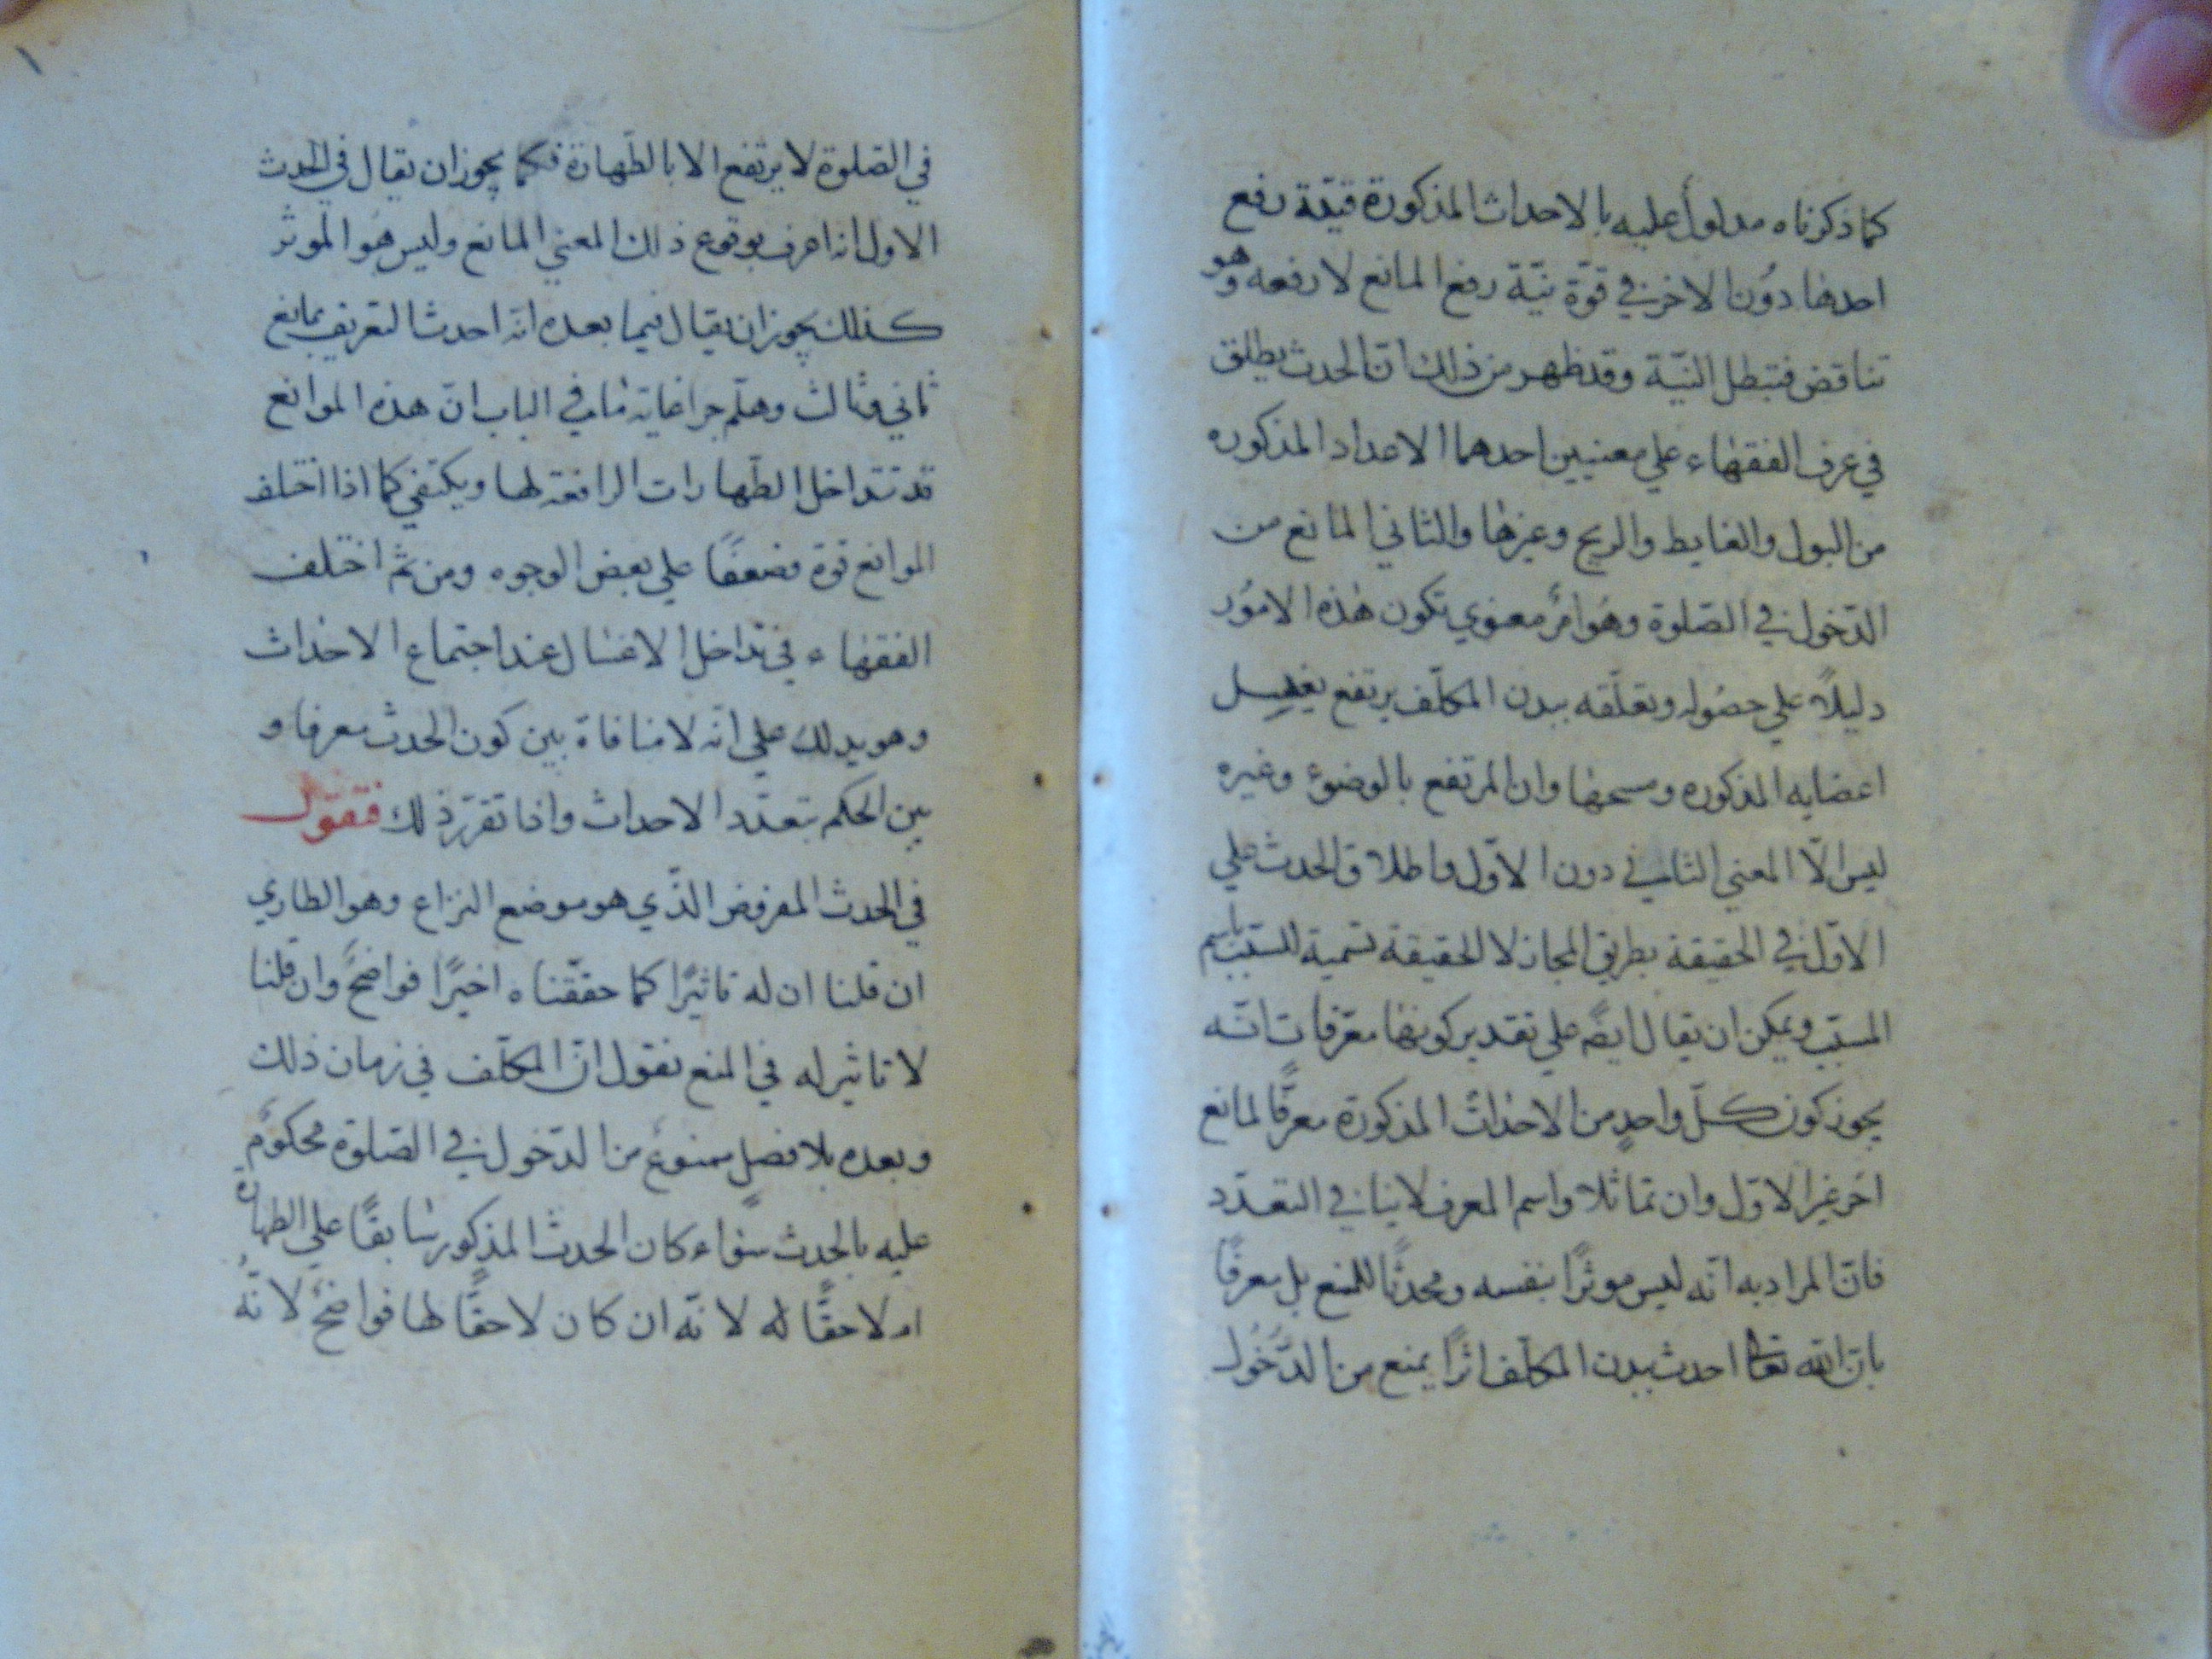 كما ذكرناه مدلولً عليه بالاحداث المذكورة فنيّة رفع
احدها دُون الاخر في قوّة نيّة رفع المانع لا رفعه وهو
تناقض فتبطل النيّة وقد ظهر من ذلك انّ الحدث يطلق
في عرف الفقهاء علي معنيين احدهما الاعداد المذكوره
من البول والغايط والريح وغيرها والثاني المانع من
الدّخول في الصّلوة وهُو امرٌ معنوي تكون هذه الامُور
دليلاً علي حصُوله وتعلّقه ببدن المكلّف يرتفع بغسل
اعضايه المذكوره ومسحها وان المرتفع بالوضوء وغيره
ليس الّا المعني الثاني دون الاوّل واطلاق الحدث علي
الاوّل في الحقيقة بطريق المجاز لا الحقيقة تسمية للسبب باسم
المسبّب ويمكن ان يقال ايضً علي تقدير كونها معرّفات انّه
يجوز كون كلّ واحدٍ من الاحداث المذكورة معرّفًا لمانع
اخر غير الاوّل وان تماثلا واسم المعرف لا ينافي التعدّد
فانّ المراد به انّه ليس موثرًا بنفسه ومحدثًا للمنع بل معرفًا
بانّ اللّه تعالى احدث ببدن المكلّف اثرًا يمنع من الدّخُول
في الصّلوة لا يرتفع الا بالطّهارة فكما يجوز ان يقال في الحدث
الاول انه اعرف بوقوع ذلك المعني المانع وليس هُو الموثر
كذلك يجوز ان يقال فيما بعده انّه احدث التعريف بمانع
ثاني وثالث وهلّم جرا غاية ما في الباب انّ هذه الموانع
قد تتداخل الطّهارات الرافعة لها ويكتفي كما اذا اختلف
الموانع قوة وضعفًا علي بعض الوجوه ومن ثمّ اختلف
الفقهاء في تداخل الاغسال عند اجتماع الاحداث
وهو يدلك علي انّه لا منافاة بين كون الحدث معرفا و
بين الحكم بتعدّد الاحداث واذا تقرّر ذلك فنقول
في الحدث المفروض الذّي هو موضع النزاع وهو الطاري
ان قلنا ان له تاثيرًا كما حققّناه اخيرًا فواضحٌ وان قلنا
لا تاثير له في المنع نقول انّ المكلّف في زمان ذلك
وبعده بلا فصلٍ ممنوعٌ من الدّخول في الصّلوة محكومٌ
عليه بالحدث سَواء كان الحدث المذكور سابقًا علي الطهارة
او لاحقًا له لانّه ان كان لاحقًا لها فواضحٌ لانّهُ